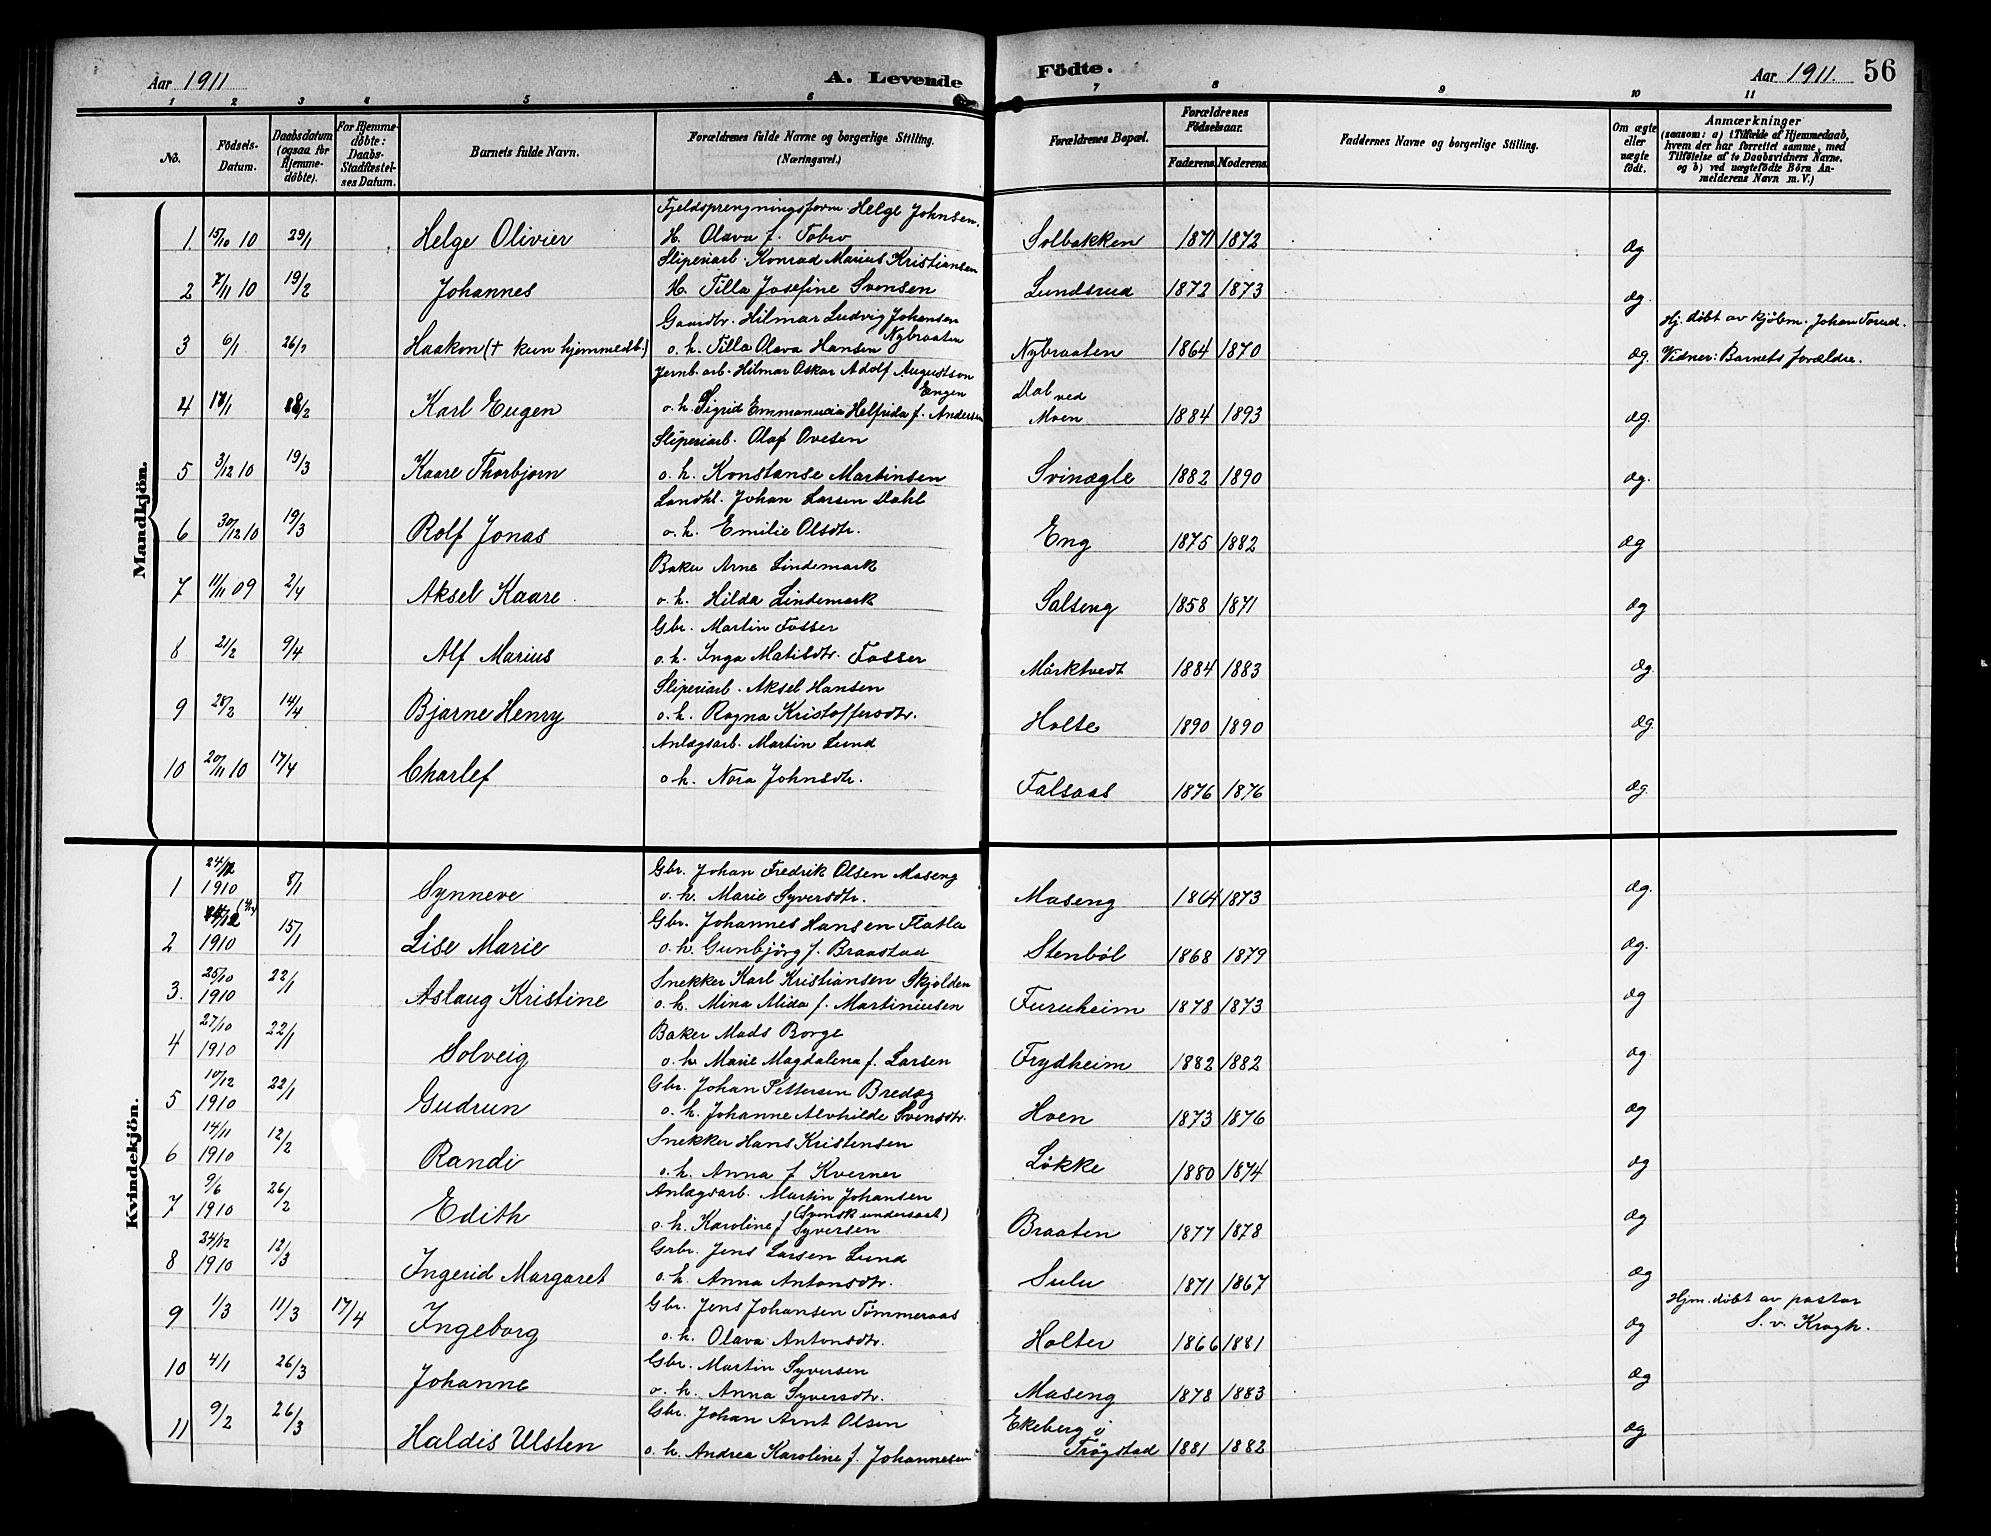 Aar 1911 A. Levende Födte. Aar 1911. 56
1 2 3 4 5 6 7 8 9 10 11
No. Födsels-Datum. Daabsdatum (ogsaa for Hjemme-döbte). For Hjemme-döbte: Daabs-Stadfæstel-ses Datum. Barnets fulde Navn. Forældrenes fulde Navne og borgerlige Stilling. (Næringsvei.) Forældrenes Bopæl. Forældrenes Födselsaar. Faderens. Moderens. Faddernes Navne og borgerlige Stilling. Om ægte eller uægte födt. Anmærkninger (saasom: a) i Tilfælde af Hjemmedaab, hvem der har forrettet samme, med Tilföielse af to Daabsvidners Navne, og b) ved uægtefödte Börn An-melderens Navn m. V.)
Mandkjön.
Fjeldsprengningsform. Helge Johnsen.
1 15/10 10 29/1 Helge Olivier H. Olava f. Tobro Solbakken 1871 1872 Æg
Sliperiarb. Konrad Marius Kristiansen
2 7/11 10 19/2 Johannes H. Tilla Josefine Svensen Lundsrud 1872 1873 Æg.
Gaardbr. Hilmar Ludvig Johansen Nybraaten Hj. döbt av kjöbm. Johan Torud.
3 6/1 26/2 Haakon († kun hjemmedb.) o. h. Tilla Olava Hansen Nybraaten 1864 1870 Æg. Vidner: Barnets forældre.
Jernb. arb. Hilmar Oskar Adolf Augustson Engen Dal ved
4 17/1 18/2 Karl Eugen o. h. Sigrid Emmanucia Helfrida f. Andersen Moen 1884 1893 Æg.
Sliperiarb. Olaf Ovesen
5 3/12 10 19/3 Kaare Thorbjorn o. h. Konstanse Martinsen Svinægle 1882 1890 Æg.
Landhl. Johan Larsen Dahl
6 30/12 10 19/3 Rolf Jonas o. h. Emilie Olsdtr. Eng 1875 1882 Æg
Baker Arne Lindemark
7 11/11 09 2/4 Aksel Kaare o. h. Hilda Lindemark Salseng 1858 1871 Æg
Gbr. Martin Fosser
8 21/2 9/4 Alf Marius o. h. Inga Matilsdtr. Fosser Mörktvedt 1884 1883 Æg.
Sliperiarb. Aksel Hansen
9 28/2 14/4 Bjarne Henry o. h. Ragna Kristoffersdtr. Holte 1890 1890 Æg.
Anlægsarb. Martin Lund
10 20/11 10 17/4 Charlef o. h. Nora Johnsdtr. Falsaas 1876 1876 Æg.
Kvindekjön.
24/12 Gbr. Johan Fredrik Olsen Maseng
1 1910 8/1 Synneve o. h. Marie Syversdtr. Maseng 1864 1873 Æg.
Gbr. Johannes Hansen Flatla
2 1910 15/1 Lise Marie o. h. Gunbjörg f. Braastad Stenböl 1868 1879 Æg.
25/10 Snekker Karl Kristiansen Skjolden
3. 1910 22/1 Aslaug Kristine o. h. Mina Alida f. Martiniusen Furuheim 1878 1873 Æg
27/10 Baker Mads Borge
4 1910 22/1 Solveig o. h. Marie Magdalena f. Larsen Frydheim 1882 1882 Æg.
10/12 Gbr. Johan Pettersen Bredæg
5 1910 22/1 Gudrun o. h. Johanne Alvhilde Svensdtr. Hoen 1873 1876 Æg
14/11 Snekker Hans Kristensen
6 1910 12/2 Randi o. h. Anna f Kverner Lökke 1880 1874 Æg
9/6 Anlægsarb. Martin Johansen (Svensk undersaat)
7 1910 26/2 Edith o. h. Karoline f Syversen Braaten 1877 1878 Æg
24/12 Grbr. Jens Larsen Lund
8 1910 12/3 Ingerid Margaret o. h. Anna Antonsdtr. Sulu 1871 1867 Æg
Gbr. Jens Johansen Tömmeraas Hjm. döbt av pastor
9 1/3 11/3 17/4 Ingeborg o. h. Olava Antonsdtr. Holter 1866 1881 Æg S. v. Krogh.
Gbr. Martin Syversen
10 4/1 26/3 Johanne o. h. Anna Syversdtr. Maseng 1878 1883 Æg
Gbr. Johan Arnt Olsen Ekeberg i
11 9/2 26/3 Haldis Ulsten o. h. Andrea Karoline f. Johannesen Trögstad 1881 1882 Æg